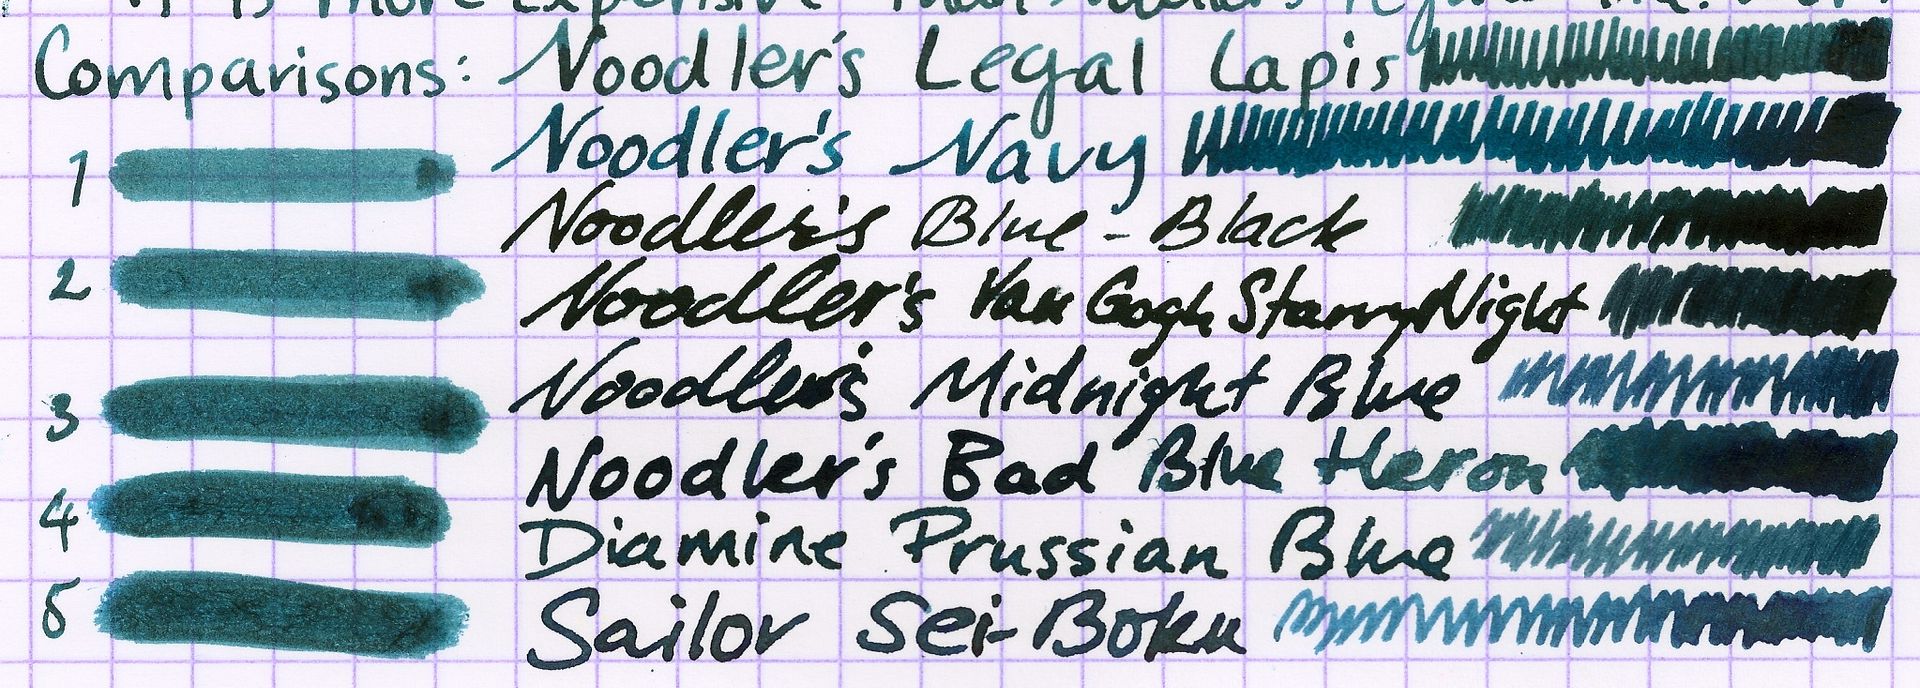 It is more expensive than Noodler's regular line.
Comparisons: Noodler's Legal Lapis
Noodler's Navy
1
Noodler's Blue-Black
2 Noodler's Van Gogh Starry Night
Noodler's Midnight Blue
3
Noodler's Bad Blue Heron
4 Diamine Prussian Blue
5 Sailor Sei-Boku